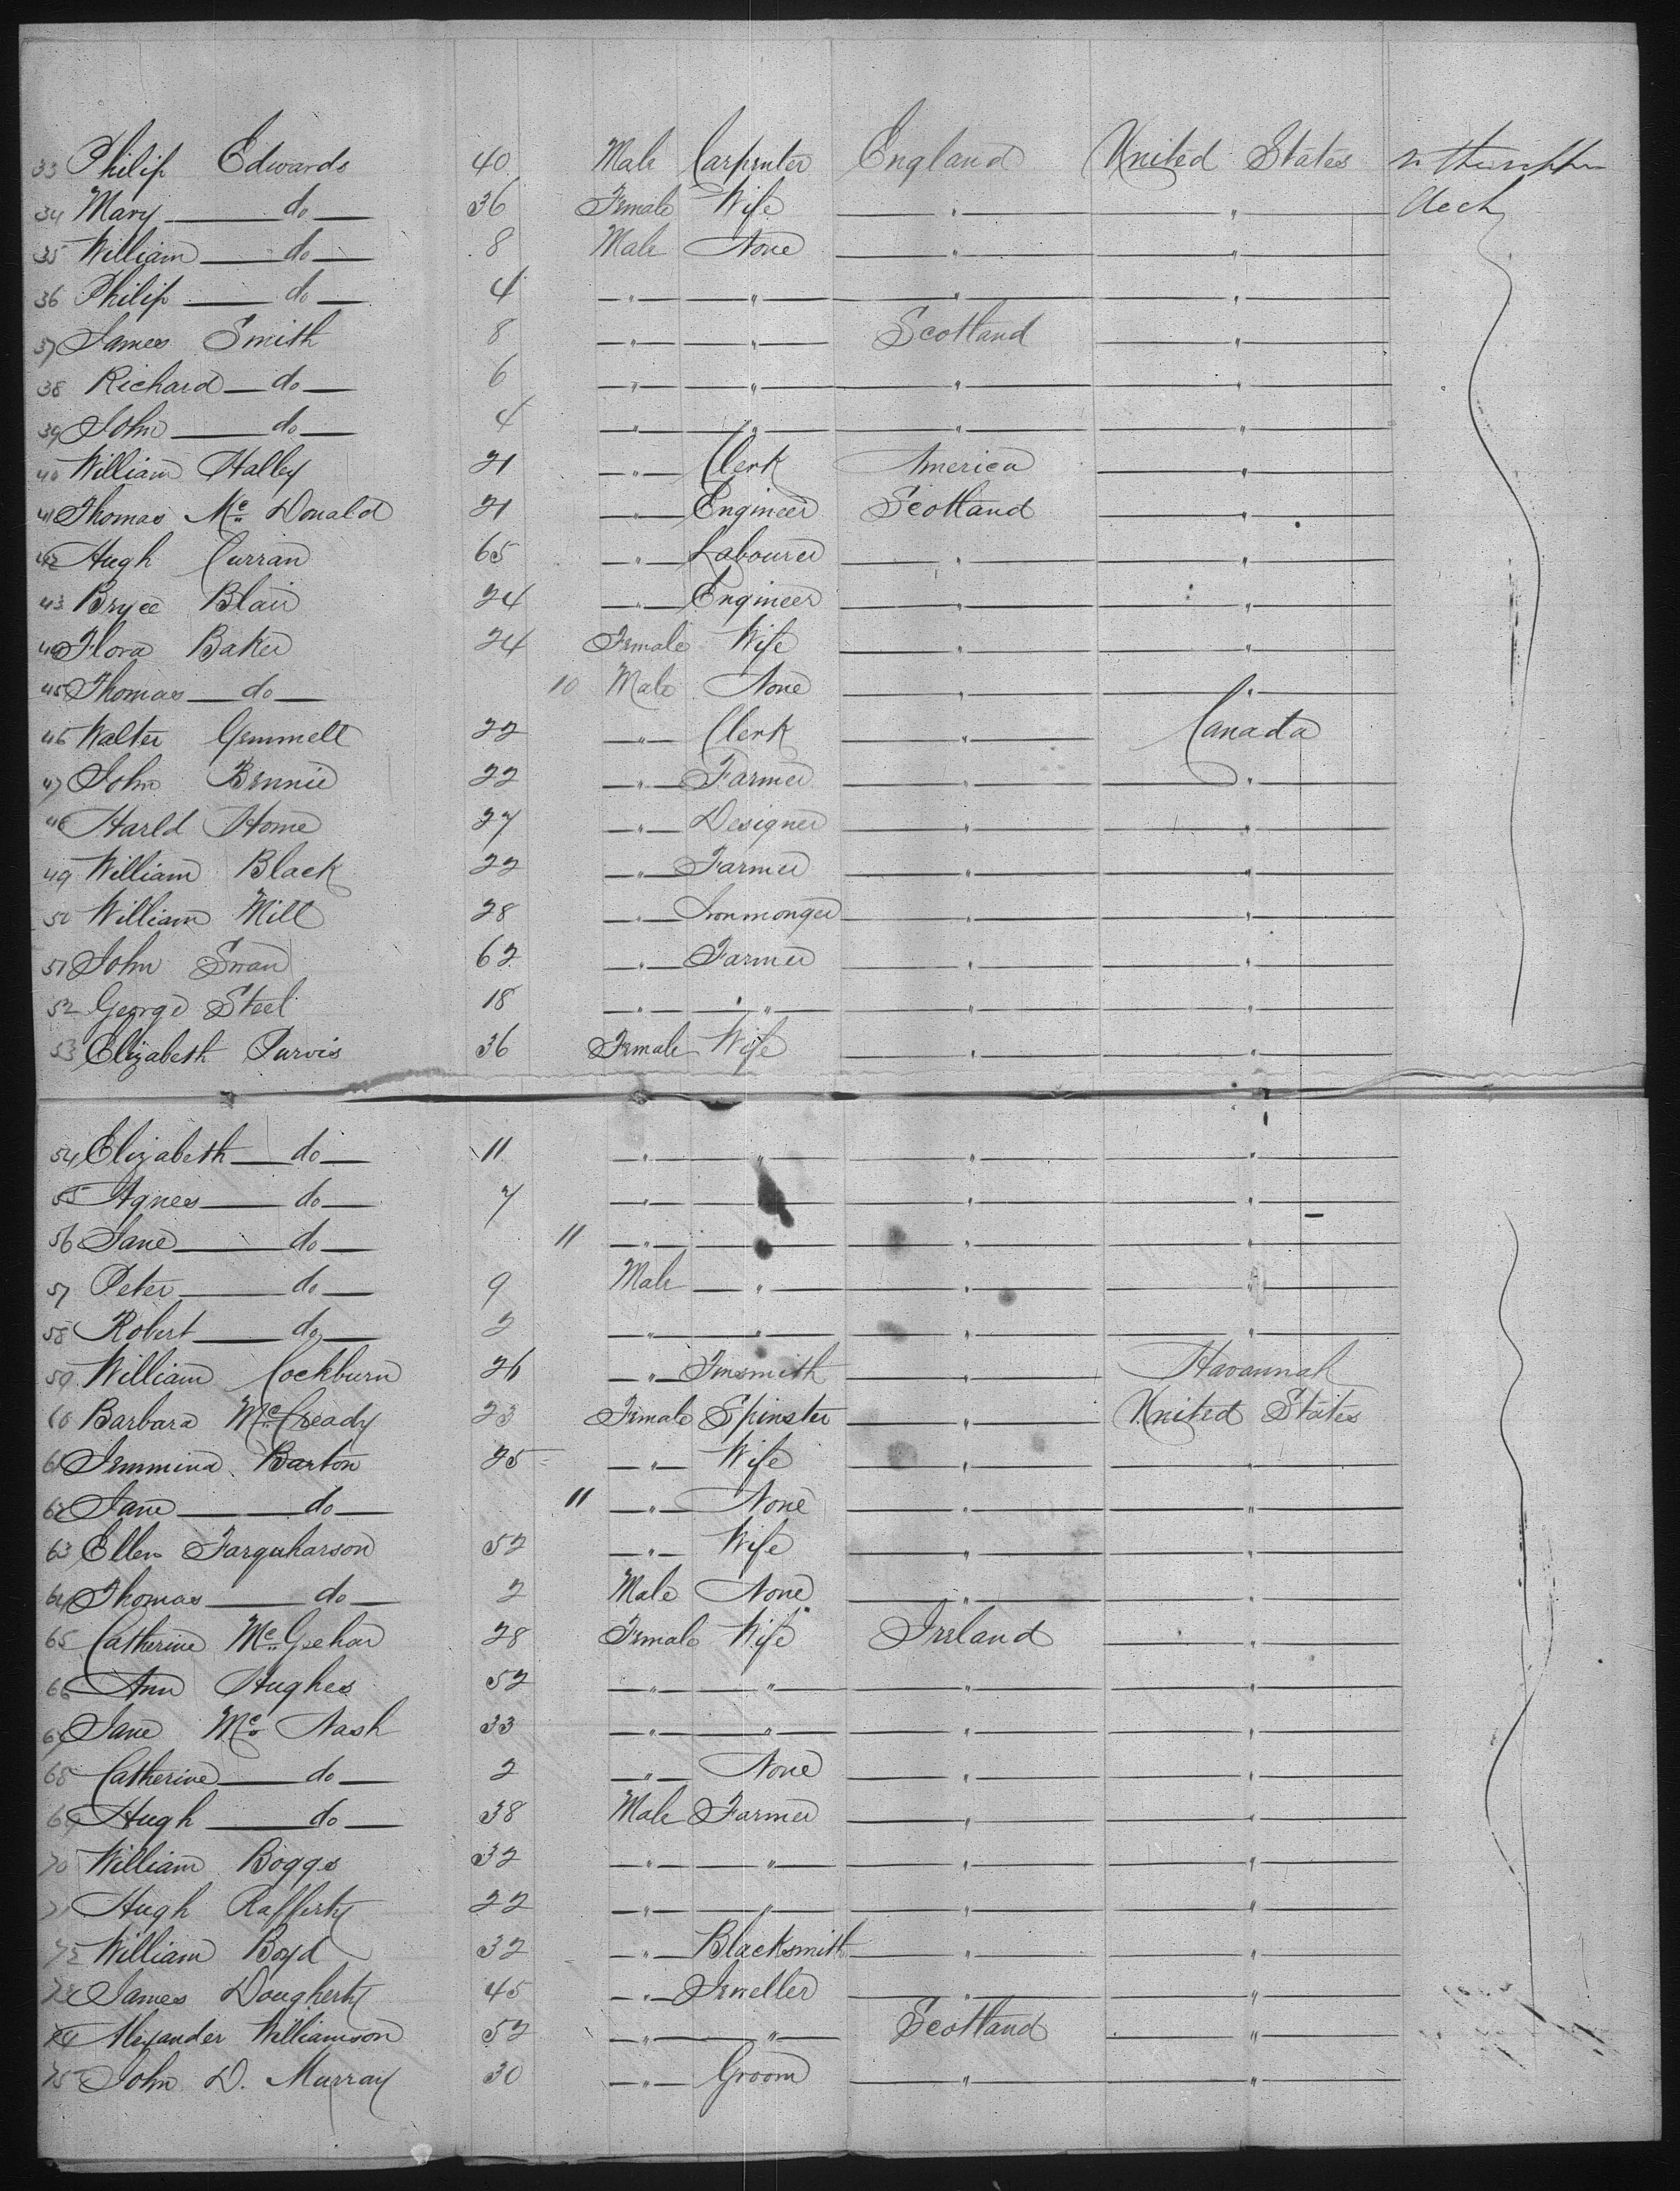 33 Philip Edwards 40 Male Carpenter England United States
34 Mary — do — 36 Female Wife — " — — " — deck
35 William — do — 8 Male None — " — — " —
36 Philip — do — 4 — " — — " — — " — — " —
37 James Smith 8 — " — — " — Scotland — " —
38 Richard — do — 6 — " — — " — — " — — " —
39 John — do — 4 — " — — " — — " — — " —
40 William Halley 21 — " — Clerk America — " —
41 Thomas Mc Donald 21 — " — Engineer Scotland — " —
42 Hugh Curran 65 — " — Labourer — " — — " —
43 Bryce Blair 24 — " — Engineer — " — — " —
44 Flora Baker 24 Female Wife — " — — " —
45 Thomas — do — 10 Male None — " — — " —
46 Walter Gemmell 22 — " — Clerk — " — Canada
47 John Brnnie 22 — " — Farmer — " — — " —
48 Harld Home 27 — " — Designer — " — — " —
49 William Black 22 — " — Farmer — " — — " —
50 William Mill 28 — " — Ironmonger — " — — " —
51 John Swan 62 — " — Farmer — " — — " —
52 George Steel 18 — " — — " — — " — — " —
53 Elizabeth Purvis 36 Female Wife — " — — " —
54 Elizabeth — do — 11 — " — — " — — " — — " —
55 Agnes — do — 7 — " — — " — — " — — " —
56 Jane — do — 11 — " — — " — — " — — " —
57 Peter — do — 9 Male — " — — " — — " —
58 Robert — do — 2 — " — — " — — " — — " —
59 William Cockburn 26 — " — Tinsmith — " — Havannah
60 Barbara McCready 23 Female Spinster — " — United States
61 Jemmina Barton 25 — " — Wife — " — — " —
62 Jane — do — 11 — " — None — " — — " —
63 Ellen Farquharson 52 — " — Wife — " — — " —
64 Thomas — do — 2 Male None — " — — " —
65 Catherine McGeehan 28 Female Wife Ireland — " —
66 Ann Hughes 52 — " — — " — — " — — " —
67 Jane Mc Nash 33 — " — — " — — " — — " —
68 Catherine — do — 2 — " — None — " — — " —
69 Hugh — do — 38 Male Farmer — " — — " —
70 William Boggs 32 — " — — " — — " — — " —
71 Hugh Rafferty 22 — " — — " — — " — — " —
72 William Boyd 32 — " — Blacksmith — " — — " —
73 James Dougherty 45 — " — Jeweller — " — — " —
74 Alexander Williamson 52 — " — — " — Scotland — " —
75 John D. Murray 30 — " — Groom — " — — " —